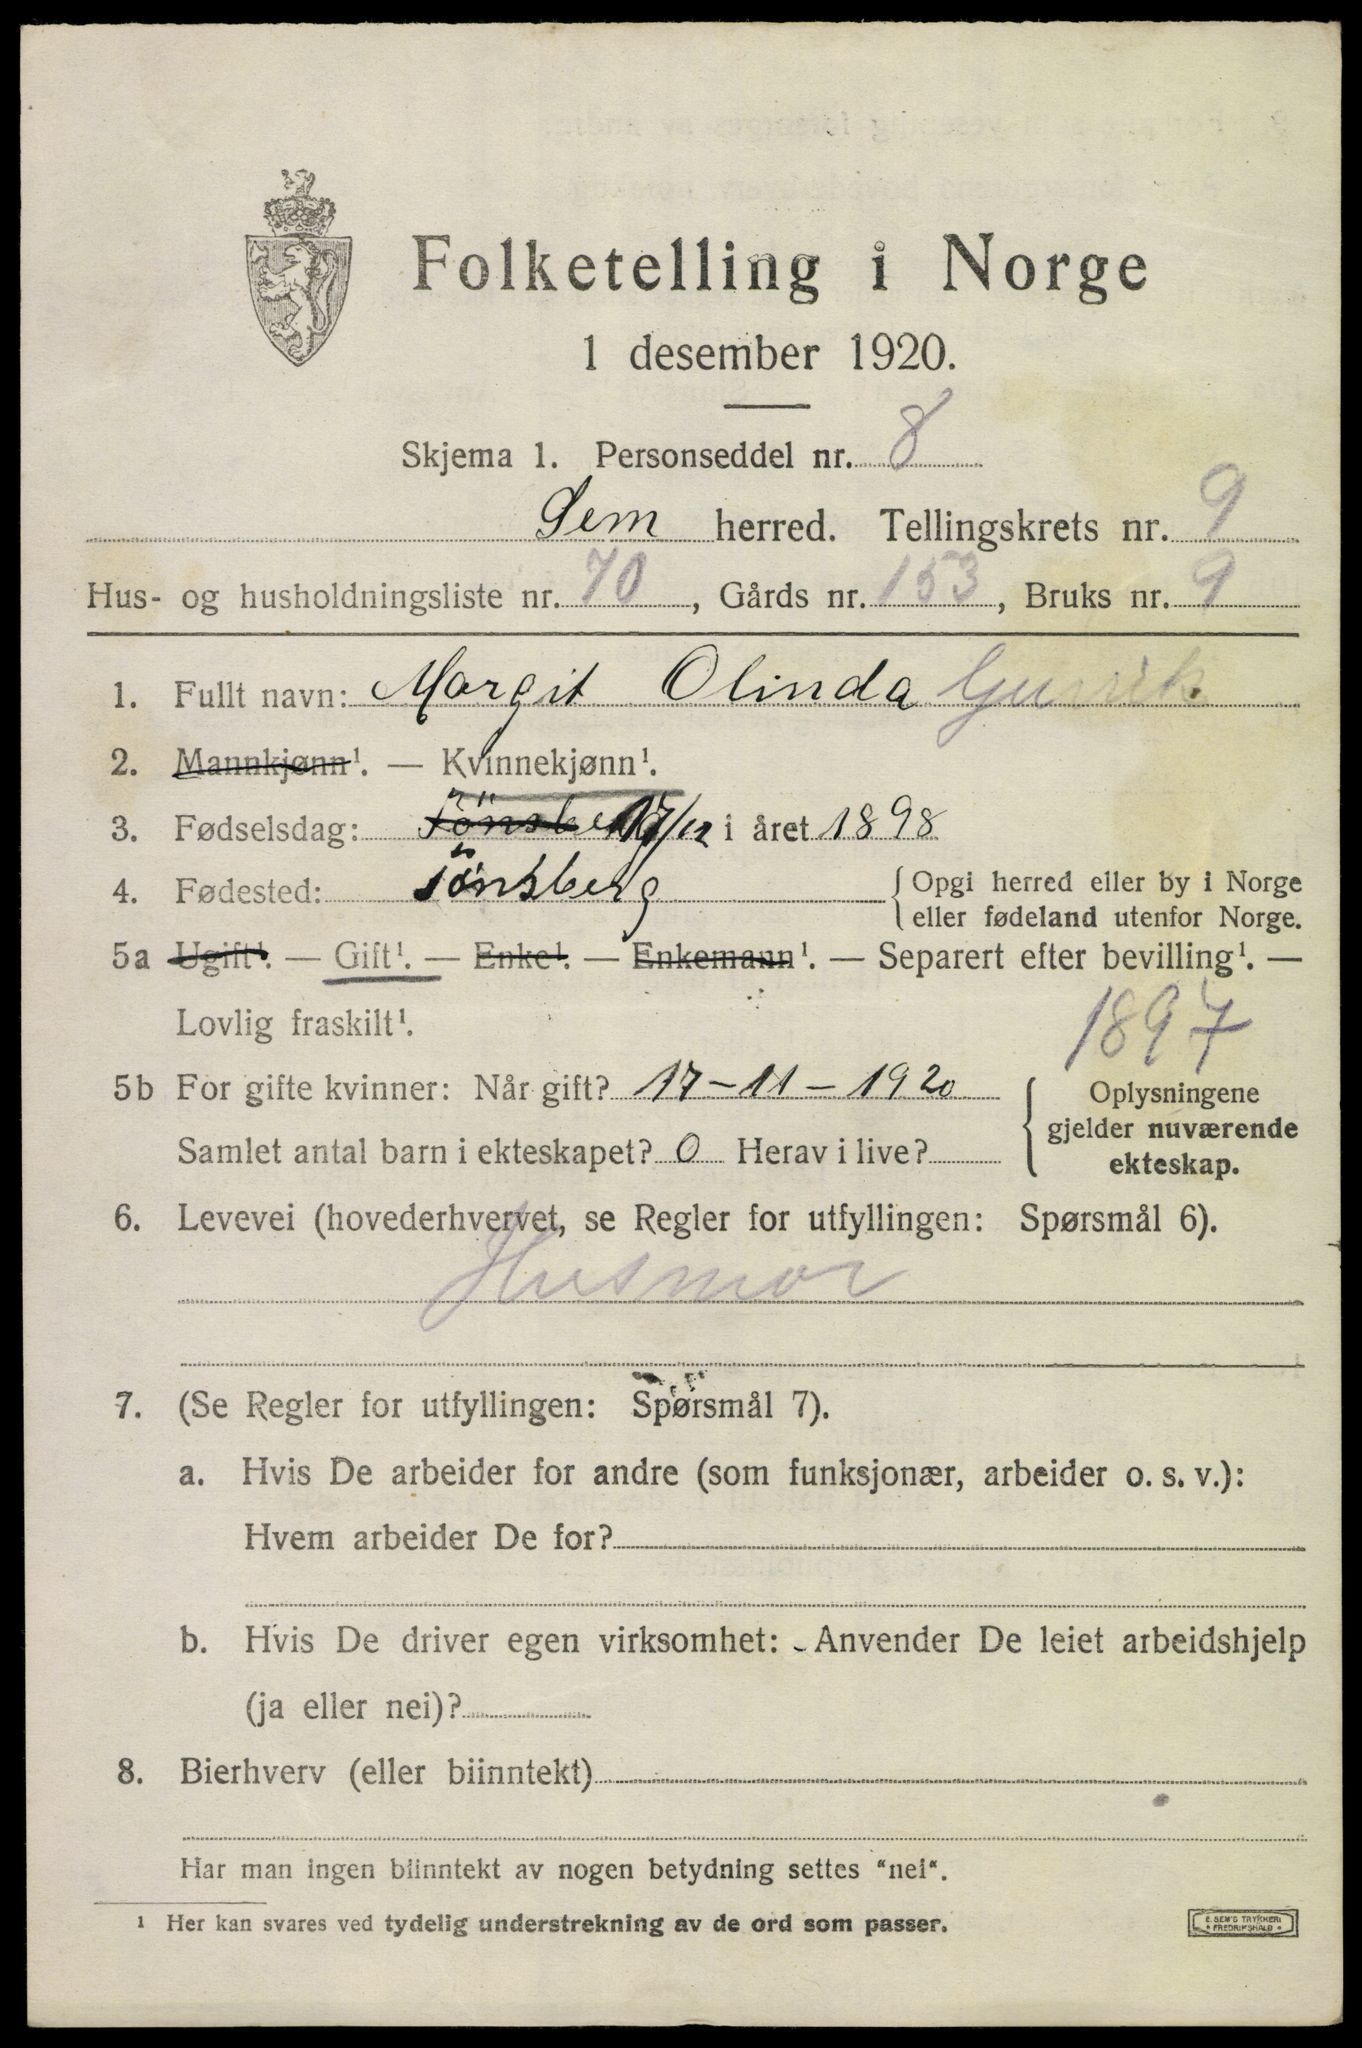 Folketelling i Norge
1 desember 1920.
Skjema 1. Personseddel nr. 8
Sem herred. Tellingskrets nr. 9
Hus- og husholdningsliste nr. 70, Gårds nr. 153, Bruks nr. 9
1. Fullt navn: Margit Olinda
2. Mannkjønn¹. — Kvinnekjønn¹.
3. Fødselsdag: Tönsberg 17/12 i året 1898
4. Fødested: Tönsberg { Opgi herred eller by i Norge
eller fødeland utenfor Norge.
5a Ugift¹. — Gift¹. — Enke¹. — Enkemann¹. — Separert efter bevilling¹. —
Lovlig fraskilt¹.
1897
5b For gifte kvinner: Når gift? 17-11-1920
Samlet antal barn i ekteskapet? 0 Herav i live?
{ Oplysningene
gjelder nuværende
ekteskap.
6. Levevei (hovederhvervet, se Regler for utfyllingen: Spørsmål 6).
Husmor
7. (Se Regler for utfyllingen: Spørsmål 7).
a. Hvis De arbeider for andre (som funksjonær, arbeider o. s. v.):
Hvem arbeider De for?
b. Hvis De driver egen virksomhet: Anvender De leiet arbeidshjelp
(ja eller nei)?
8. Bierhverv (eller biinntekt)
Har man ingen biinntekt av nogen betydning settes "nei".
¹ Her kan svares ved tydelig understrekning av de ord som passer.
E. SEM'S TRYKKERI
* FREDRIKSHALD *